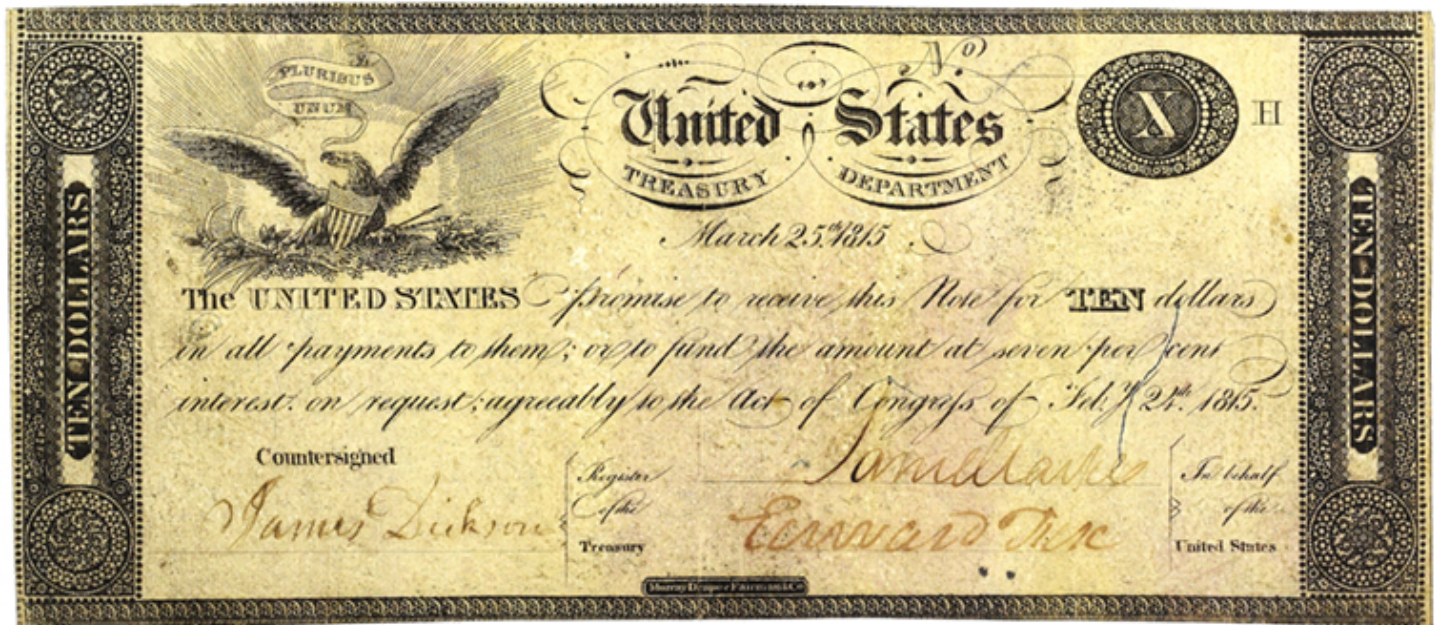 E
PLURIBUS
UNUM
No
United States
TREASURY DEPARTMENT
X
H
March 25th 1815
TEN DOLLARS
TEN DOLLARS
The UNITED STATES promise to receive this Note for TEN dollars
in all payments to them; or to fund the amount at seven per cent
interest on request; agreeably to the Act of Congress of Feb.y 24th. 1815.
Countersigned
James Dickson
Register
of the
Treasury
Edward Fox
In behalf
of the
United States
Murray Draper Fairman & Co